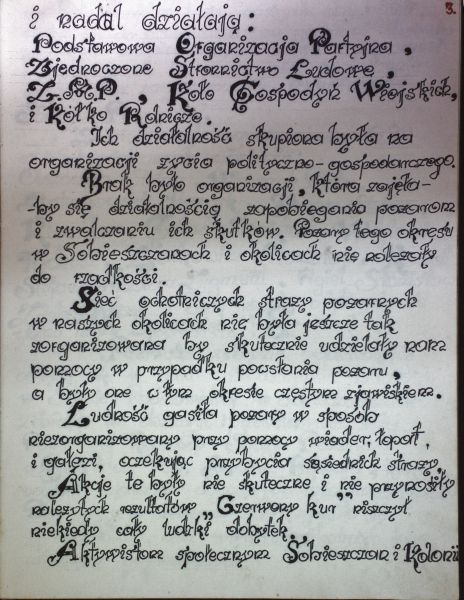 3.
i nadal działają:
Podstawowa Organizacja Partyjna,
Zjednoczone Stronnictwo Ludowe,
Z.M.P., Koło Gospodyń Wiejskich,
i Kółko Rolnicze.
Ich działalność skupiona była na
organizacji życia polityczno-gospodarczego.
Brak było organizacji, która zajęła-
-by się działalnością zapobiegania pożarom
i zwalczaniu ich skutków. Pożary tego okresu
w Sobieszczanach i okolicach nie należały
do rzadkości.
Sieć ochotniczych straży pożarnych
w naszych okolicach nie była jeszcze tak
zorganizowana by skutecznie udzielały nam
pomocy w przypadku powstania pożaru,
a były one w tym okresie częstym zjawiskiem.
Ludność gasiła pożary w sposób
niezorganizowany przy pomocy wiader, łopat,
i gałęzi, oczekując przybycia sąsiednich straży.
Akcje te były nie skuteczne i nie przynosiły
należytych rezultatów „Czerwony kur" niszczył
niekiedy cały ludzki dobytek.
Aktywistom społecznym Sobieszczan i Kolonii